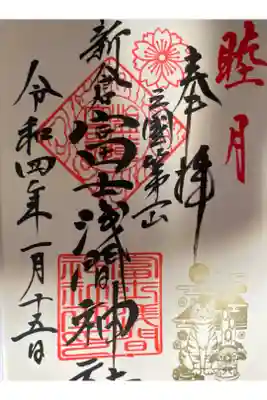 睦月
奉拝
三國第一山
新倉富士浅間神社
令和四年一月十五日